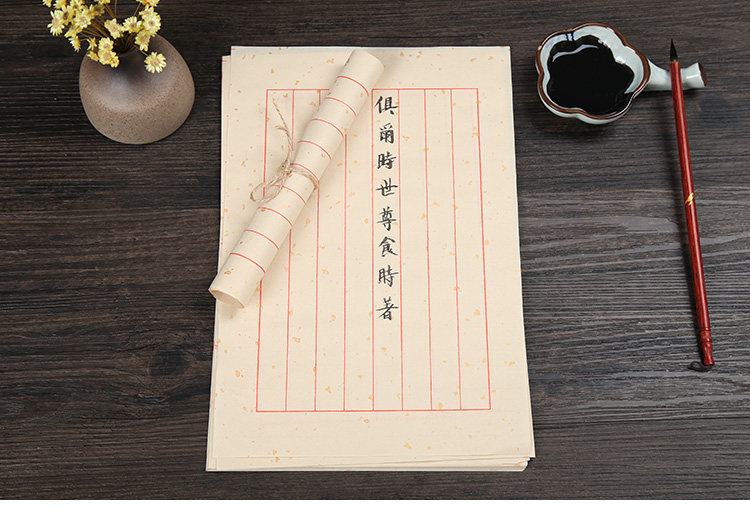 俱爾時世尊食時著